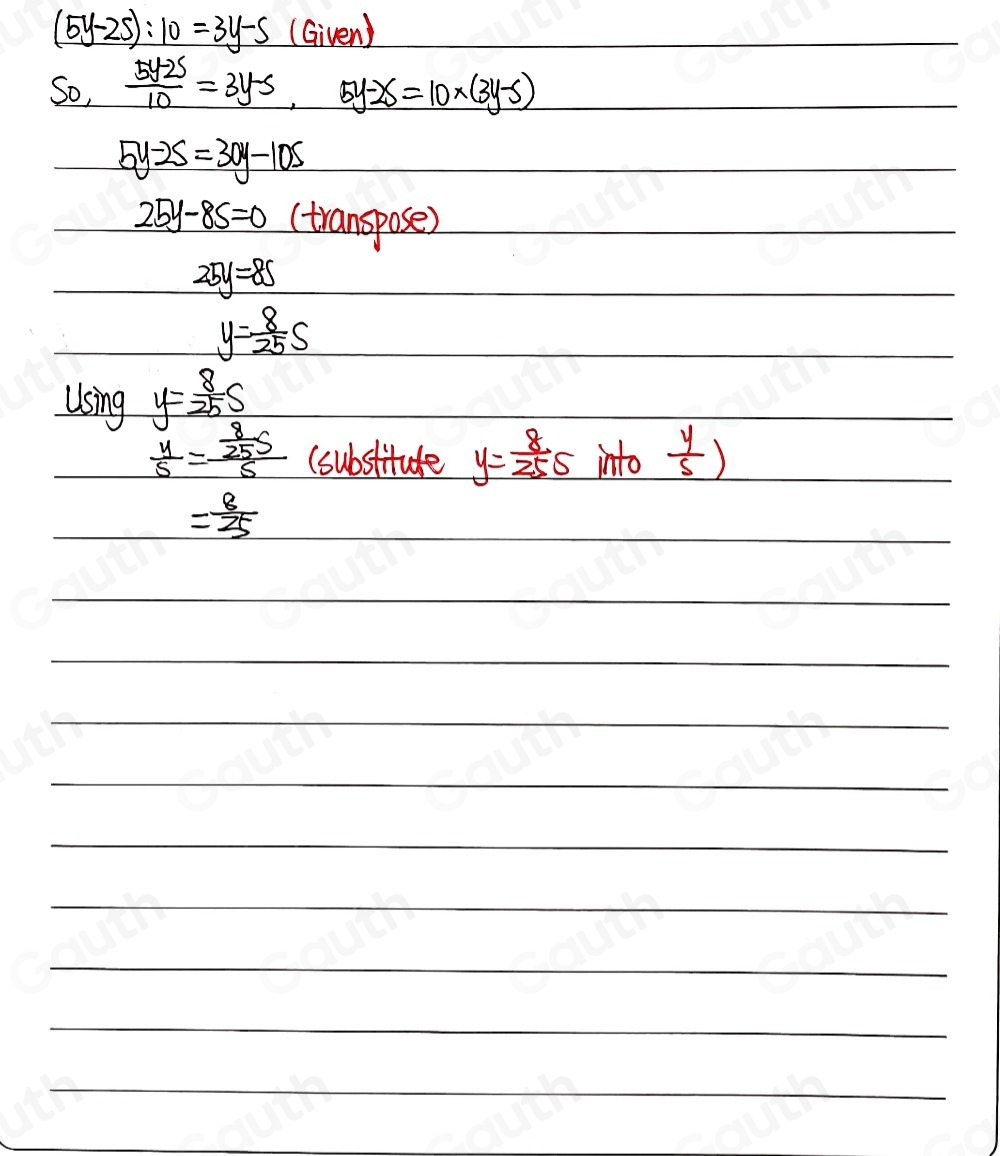 (5y-2s):10=3y-s (Given)
So, \frac{5y-2s}{10}=3y-s, 5y-2s=10×(3y-s)
5y-2s=30y-10s
25y-8s=0 (transpose)
25y=8s
y=\frac{8}{25}s
Using y=\frac{8}{25}s
\frac{y}{s}=\frac{\frac{8}{25}s}{s} (substitute y=\frac{8}{25}s into \frac{y}{s})
=\frac{8}{25}
Gauth